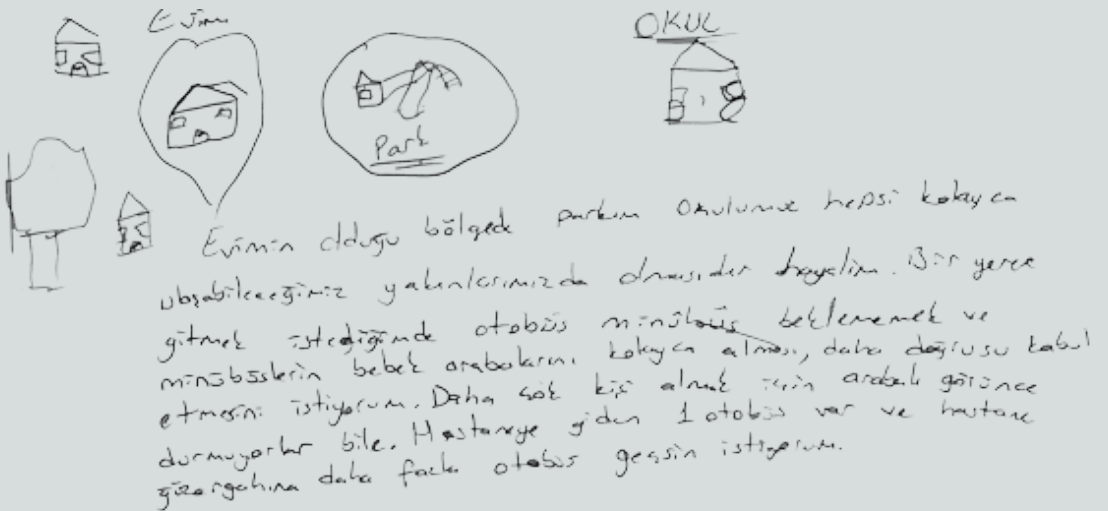 Evim
OKUL
Park
Evimin olduğu bölgede parkım okulumuz hepsi kolayca
ulaşabileceğimiz yakınlarımızda olmasıdır hayalim. Bir yere
gitmek istediğimde otobüs minübüs beklememek ve
minübüslerin bebek arabalarını kolayca alması, daha doğrusu kabul
etmesini istiyorum. Daha çok kişi almak için arabalı görünce
durmuyorlar bile. Hastaneye giden 1 otobüs var ve hastane
güzergahına daha fazla otobüs geçsin istiyorum.